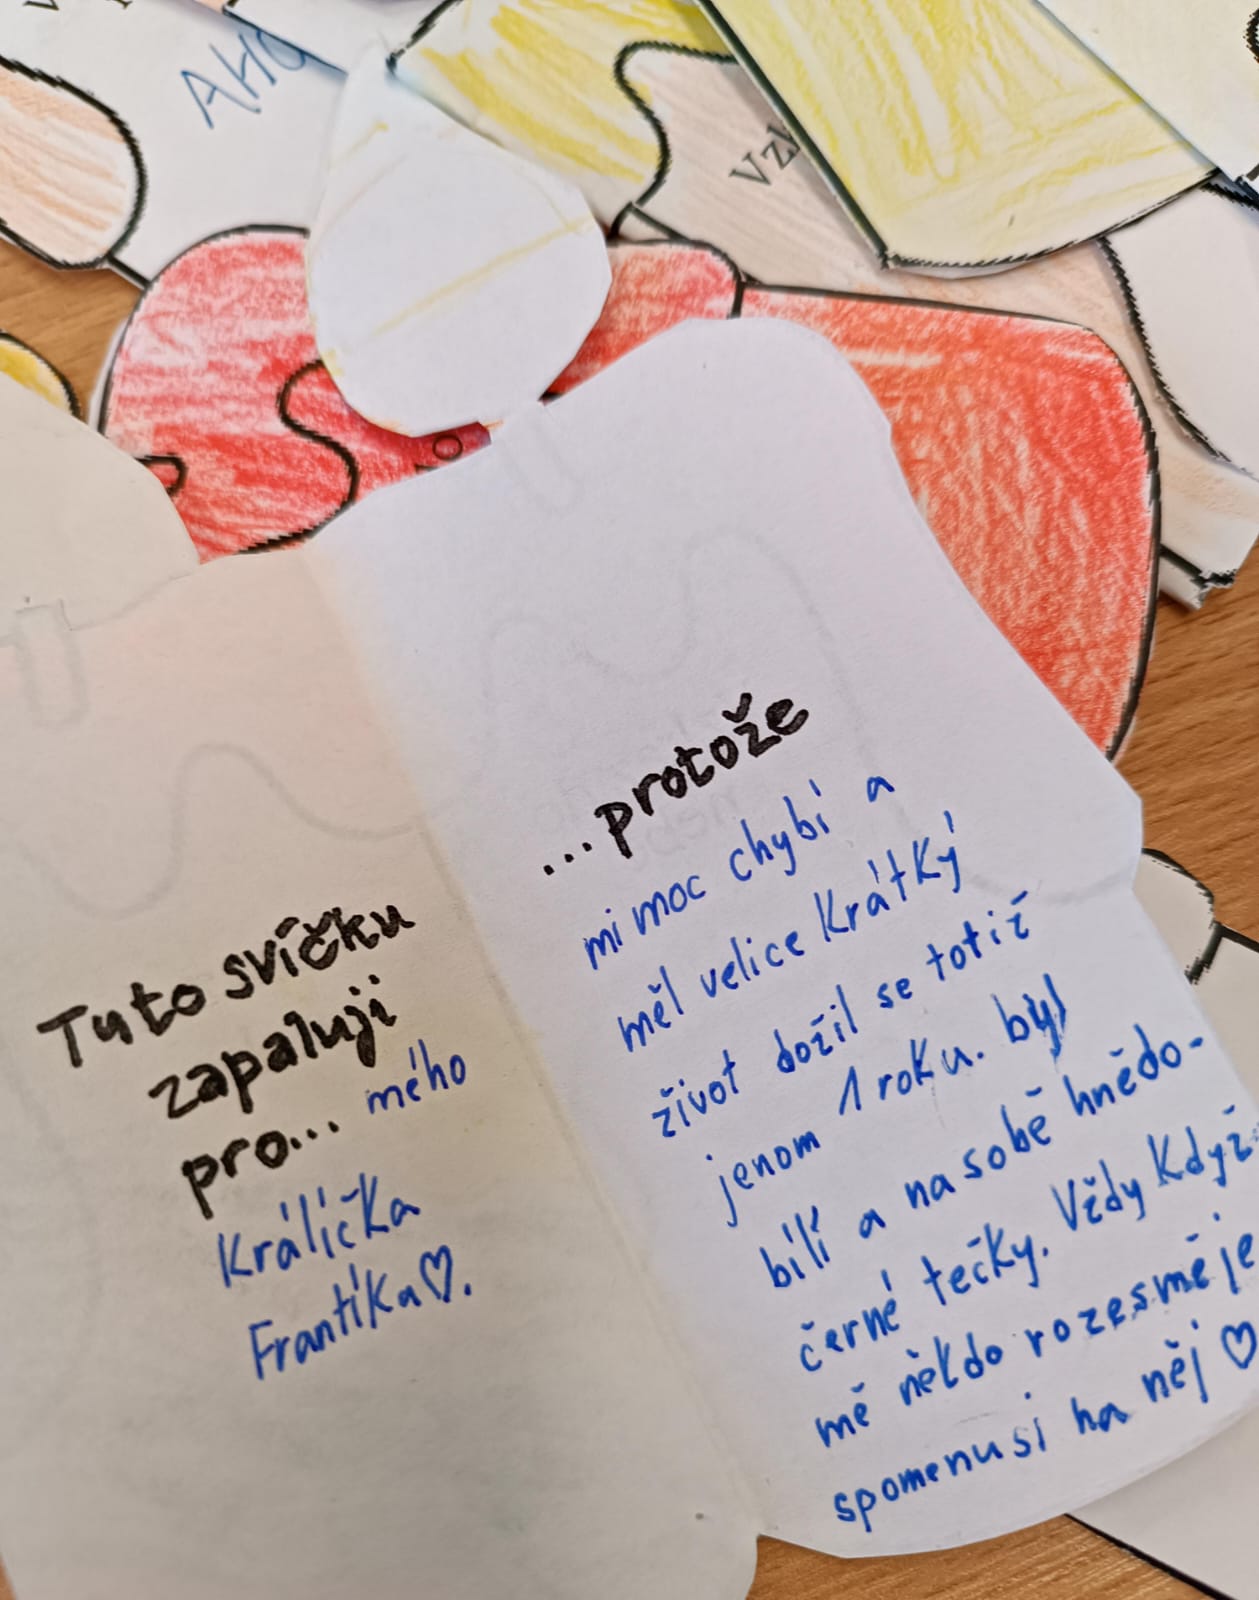 AHO
Vzk
Tuto svíčku
zapaluji
pro... mého
Králíčka
Frantíka♡.
...protože
mi moc chybí a
měl velice krátký
život dožil se totiž
jenom 1 roku. byl
bílí a na sobě hnědo-
černé tečky. Vždy když
mě někdo rozesměje
spomenu si na něj ♡